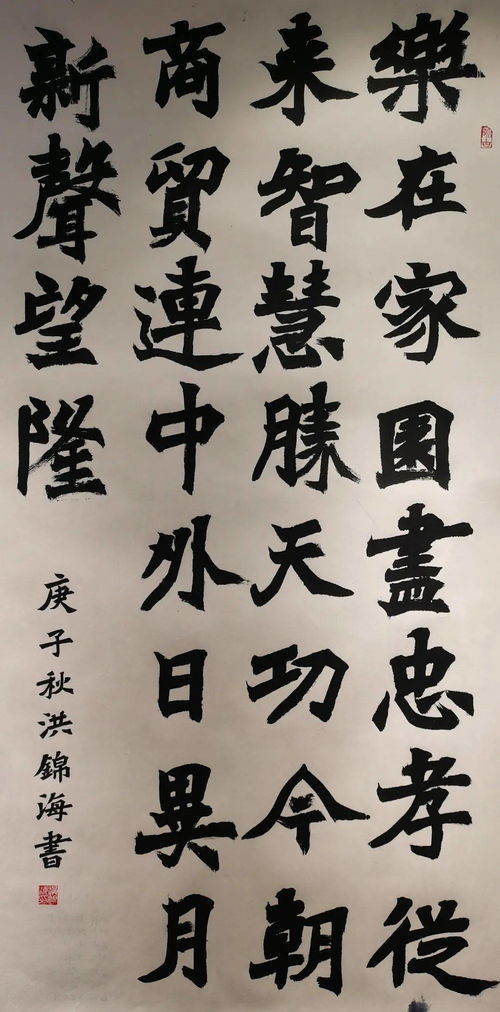 樂在家園盡忠孝從
来智慧勝天功今朝
商貿連中外日異月
新聲望隆
庚子秋洪錦海書